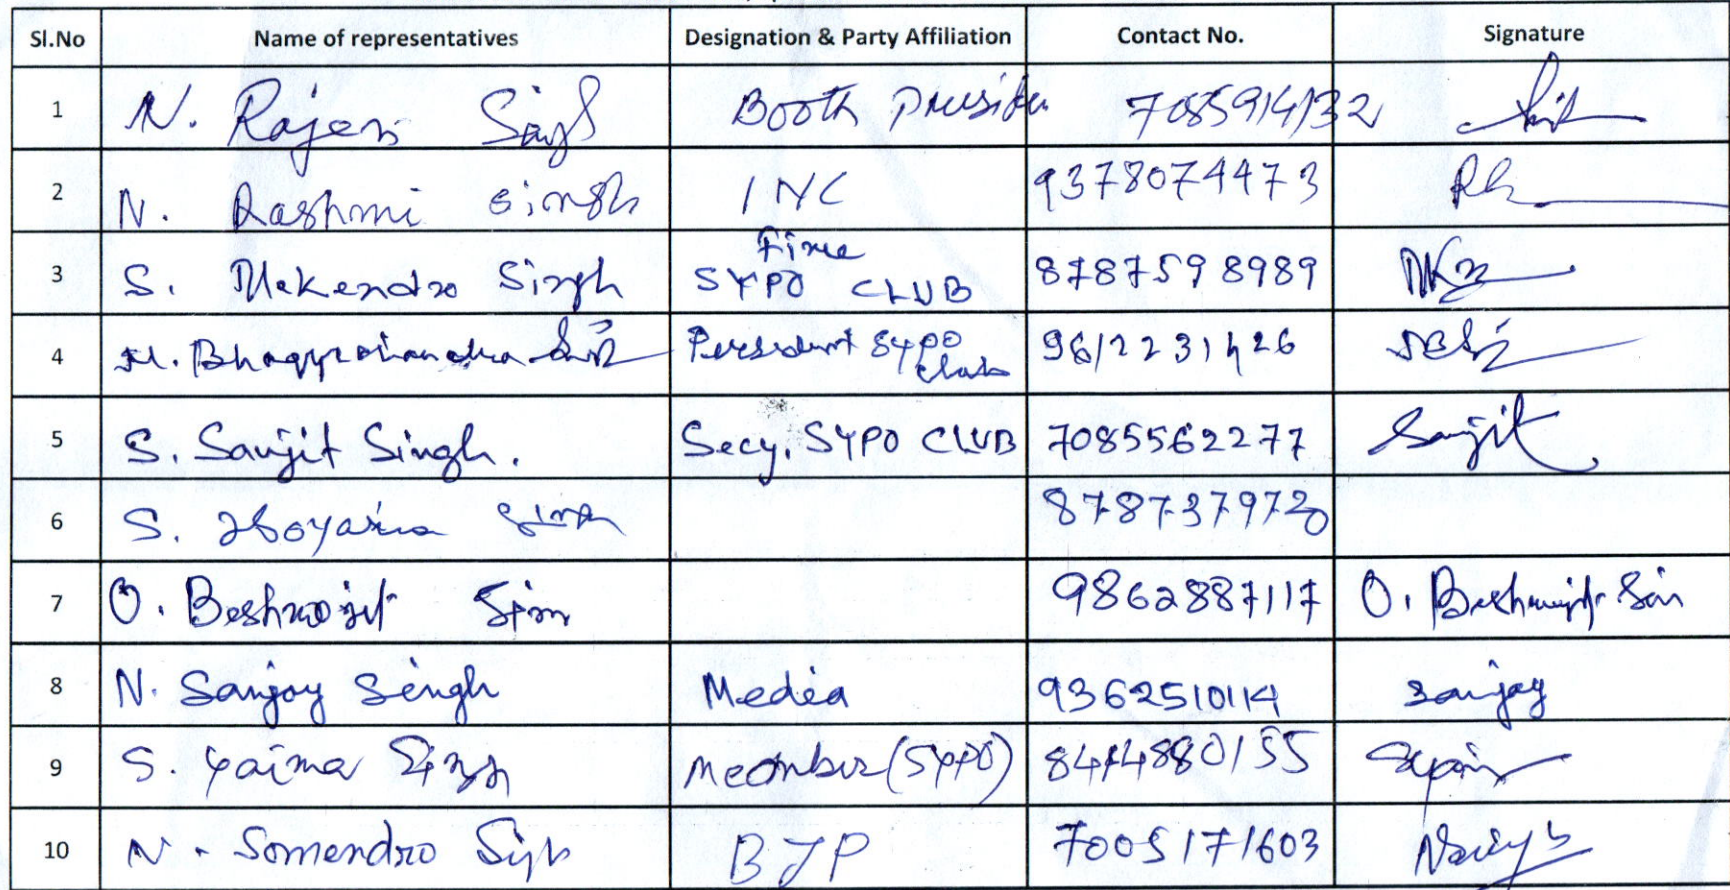 Sl.No Name of representatives Designation & Party Affiliation Contact No. Signature
1 N. Rajen Singh Booth Presiden 7085914132
2 N. Rashmi Singh INC 9378074473
3 S. Mekendro Singh Fine SYPO CLUB 8787598989
4 Persedent SYPO Club 9612231426
5 S. Sanjit Singh. Secy. SYPO CLUB 7085562277 Sanjit
6 S. Iboyaima Singh 8787379720
7 O. Beshwojit Sim 9862887117 O. Beshwojit Sin
8 N. Sanjoy Sengh Media 9362510114 Sanjoy
9 S. Yaima Singh Meomber (SYPO)
10 N. Somendro Singh BJP 7005171603